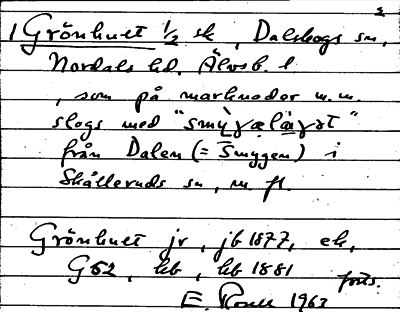 1 Grönhuet ½ sk, Dalskogs sn,
Nordals hd. Älvsb. l
, som på marknader m.m.
slogs med "smỳgæla̱gət"
från Dalen (= Smyggen) i
Skålleruds sn, m. fl.
Grönhuet jr, jb 1877, ek,
G 52, kb, hb 1881
forts.
E. 1963